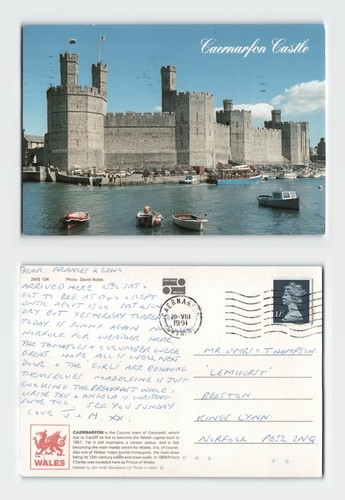 Caernarfon Castle
2WS 134
Photo: David Noble.
DEAR FRANCES & LONG
ARRIVED HERE SAT &
GOT TO BED AT & SLEPT
UNTIL ABOUT SAT &
DAY BUT YESTERDAY TURNED
TODAY IS SUNNY AGAIN NO
NORFOLK FOR WEATHER HERE
THE TOMATOES & CUCUMBER WERE
GREAT. HOPE ALL IS WELL NEXT
DOOR & THE GIRLS ARE BEHAVING
THEMSELVES MADELEINE IS JUST
COOKING THE BREAKFAST WHILE I
WRITE THIS & ANGELA IS WRITING
SEE YOU SUNDAY
LOVE J & M XX
CAERNARFON
VIII
1991
GWYNEDD
17
MR & MRS THOMPSON
'LEMHURST'
BEESTON,
KINGS LYNN
NORFOLK PE32 2NQ
WALES
CAERNARFON is the County town of Gwynedd, which
lost to Cardiff its bid to become the Welsh capital back in
1957. Yet it still maintains a certain status, and is fast
becoming the main media centre for Wales. It is, of course,
also one of Wales' major tourist honeypots, the main draw
being its 13th century castle and town walls. In 1969 Prince
Charles was invested here as Prince of Wales.